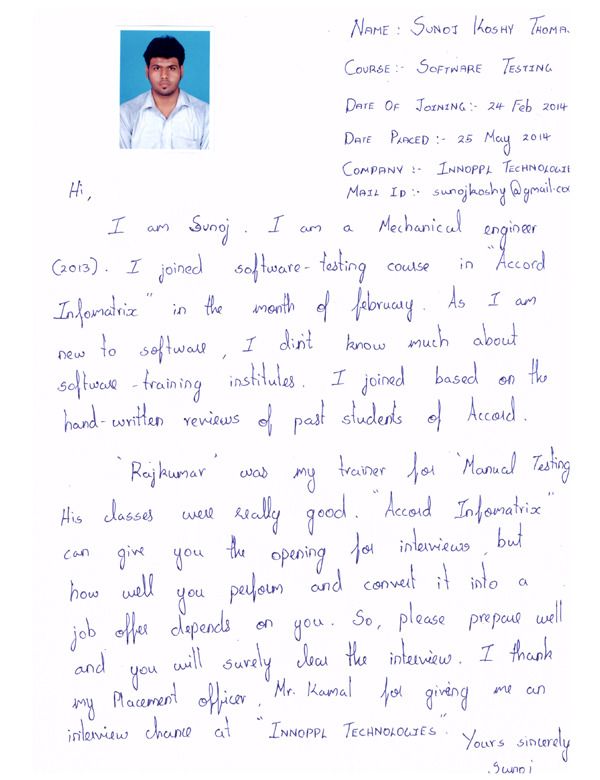 NAME : SUNOJ KOSHY THOMA
COURSE:- SOFTWARE TESTING
DATE OF JOINING:- 24 Feb 2014
DATE PLACED:- 25 May 2014
COMPANY :- INNOPPL TECHNOLOGIE
MAIL ID:- sunojkoshy@gmail.co
Hi,
I am Sunoj. I am a Mechanical engineer
(2013). I joined software-testing course in "Accord
Infomatrix" in the month of february. As I am
new to software, I did'nt know much about
software-training institutes. I joined based on the
hand-written reviews of past students of Accord.
'Rajkumar' was my trainer for 'Manual Testing
His classes were really good. "Accord Infomatrix"
can give you the opening for interviews, but
how well you perform and convert it into a
job offer depends on you. So, please prepare well
and you will surely clear the interview. I thank
my Placement officer, Mr. Kamal for giving me an
interview chance at "INNOPPL TECHNOLOGIES".
Yours sincerely
Sunoj